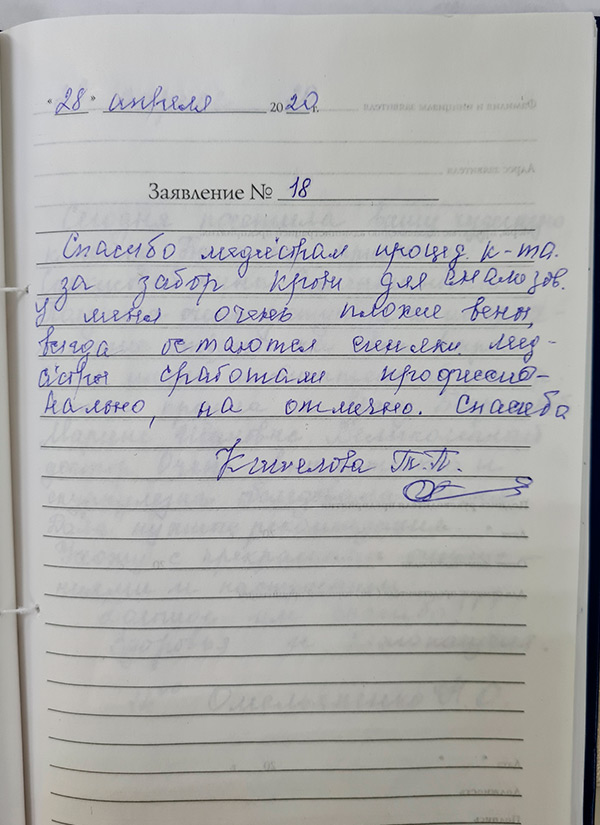 "28" апреля 2020 г.
Заявление № 18
Спасибо медсёстрам процед. к-та.
за забор крови для анализов.
У меня очень плохие вены,
всегда остаются синяки. Мед-
сёстры сработали профессио-
нально, на отлично. Спасибо
Т.П.